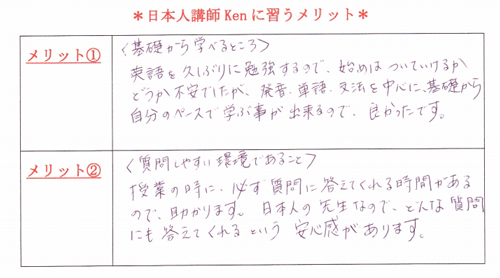 ＊日本人講師Kenに習うメリット＊
メリット①
〈基礎から学べるところ〉
英語を久しぶりに勉強するので、始めはついていけるか
どうか不安でしたが、発音、単語、文法を中心に、基礎から
自分のペースで学ぶ事が出来るので、良かったです。
メリット②
〈質問しやすい環境であること〉
授業の時に、必ず質問に答えてくれる時間がある
ので、助かります。日本人の先生なので、どんな質問
にも答えてくれるという安心感があります。